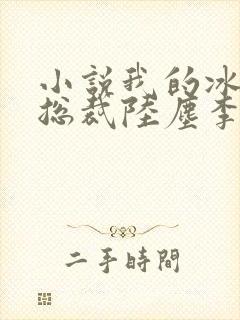 小說我的冰
總裁陸塵李
二手時間